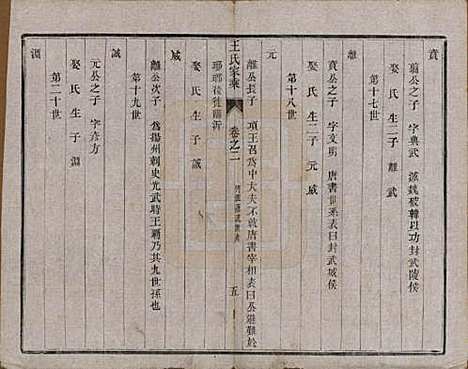 賁
翦公之子 字典武 滅魏破韓以功封武陵侯
娶 氏 生子二 離 武
第十七世
離
賁公之子 字文明 唐書世系表曰封武城侯
娶 氏 生子二 元 威
第十八世
元
離公長子 項王召爲中大夫不就唐書宰相表曰公避難於
王氏家乘 卷之二 五
瑯琊後徙臨沂
娶 氏 生子 誠
威
離公次子 爲揚州刺史光武時王霸乃其九世孫也
第十九世
誠
元公之子 字彦方
娶 氏 生子 淵
第二十世
淵